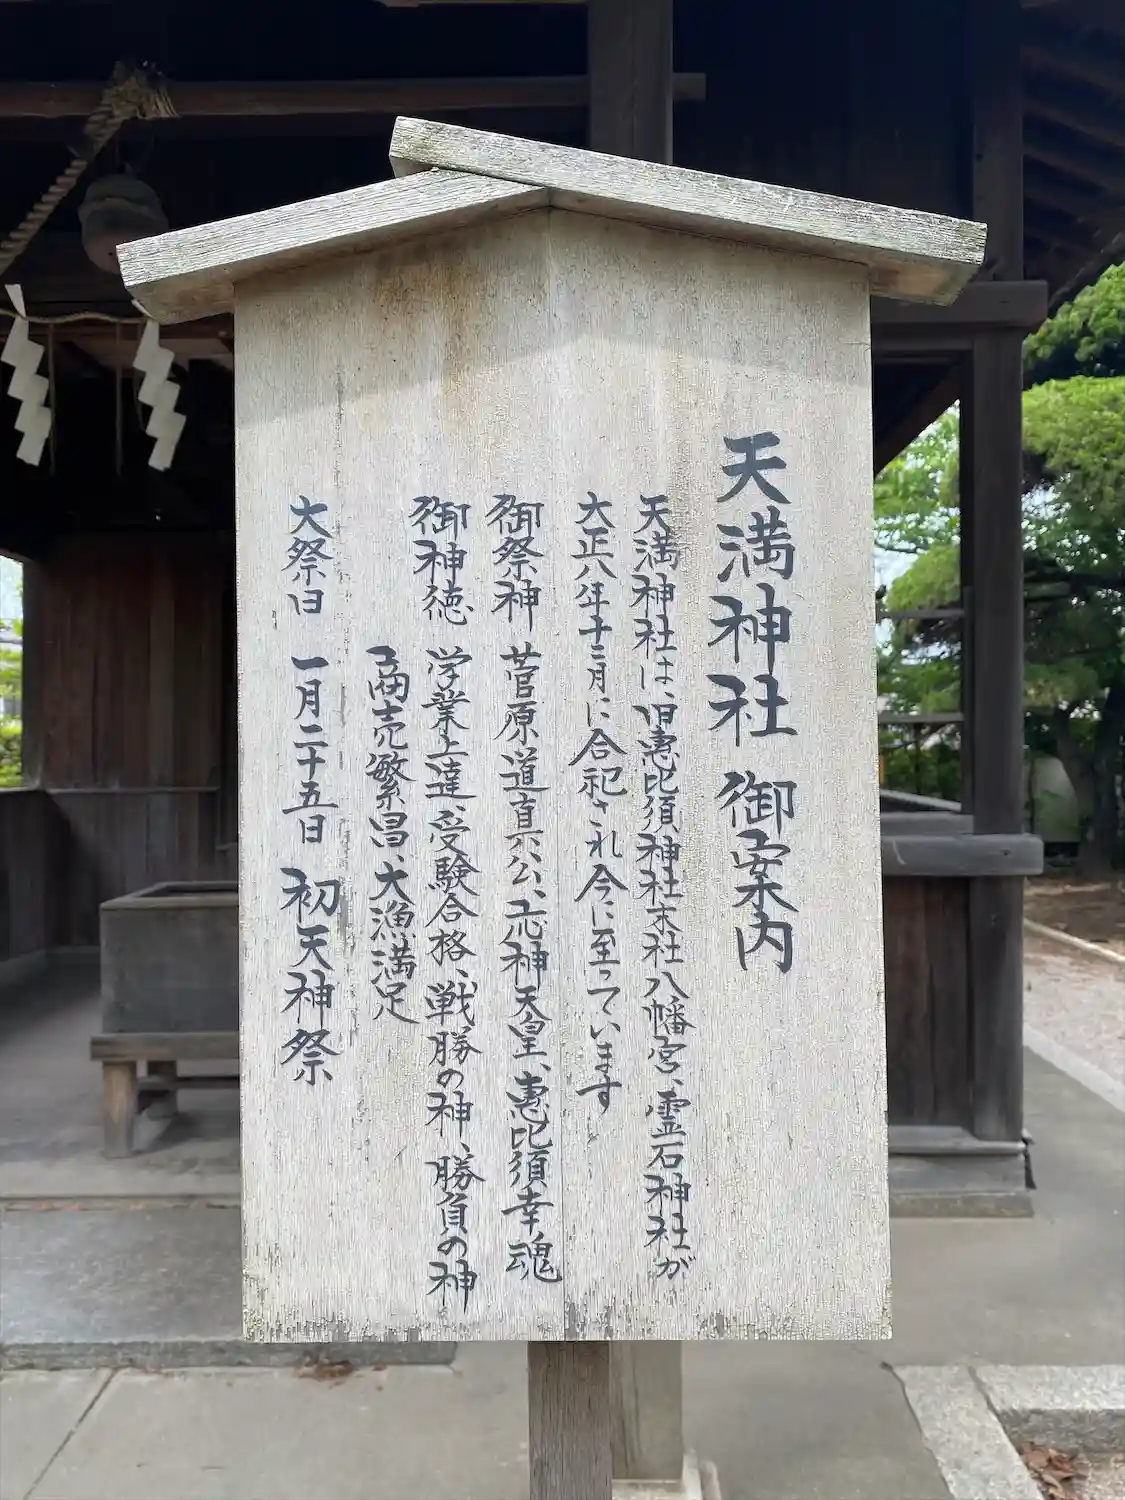 天満神社 御案内
天満神社は、旧恵比須神社末社八幡宮、霊石神社が
大正八年十二月に合祀され今に至っています
御祭神 菅原道真公、応神天皇、恵比須幸魂
御神徳 学業上達、受験合格、戦勝の神、勝負の神
商売繁昌、大漁満足
大祭日 一月二十五日 初天神祭